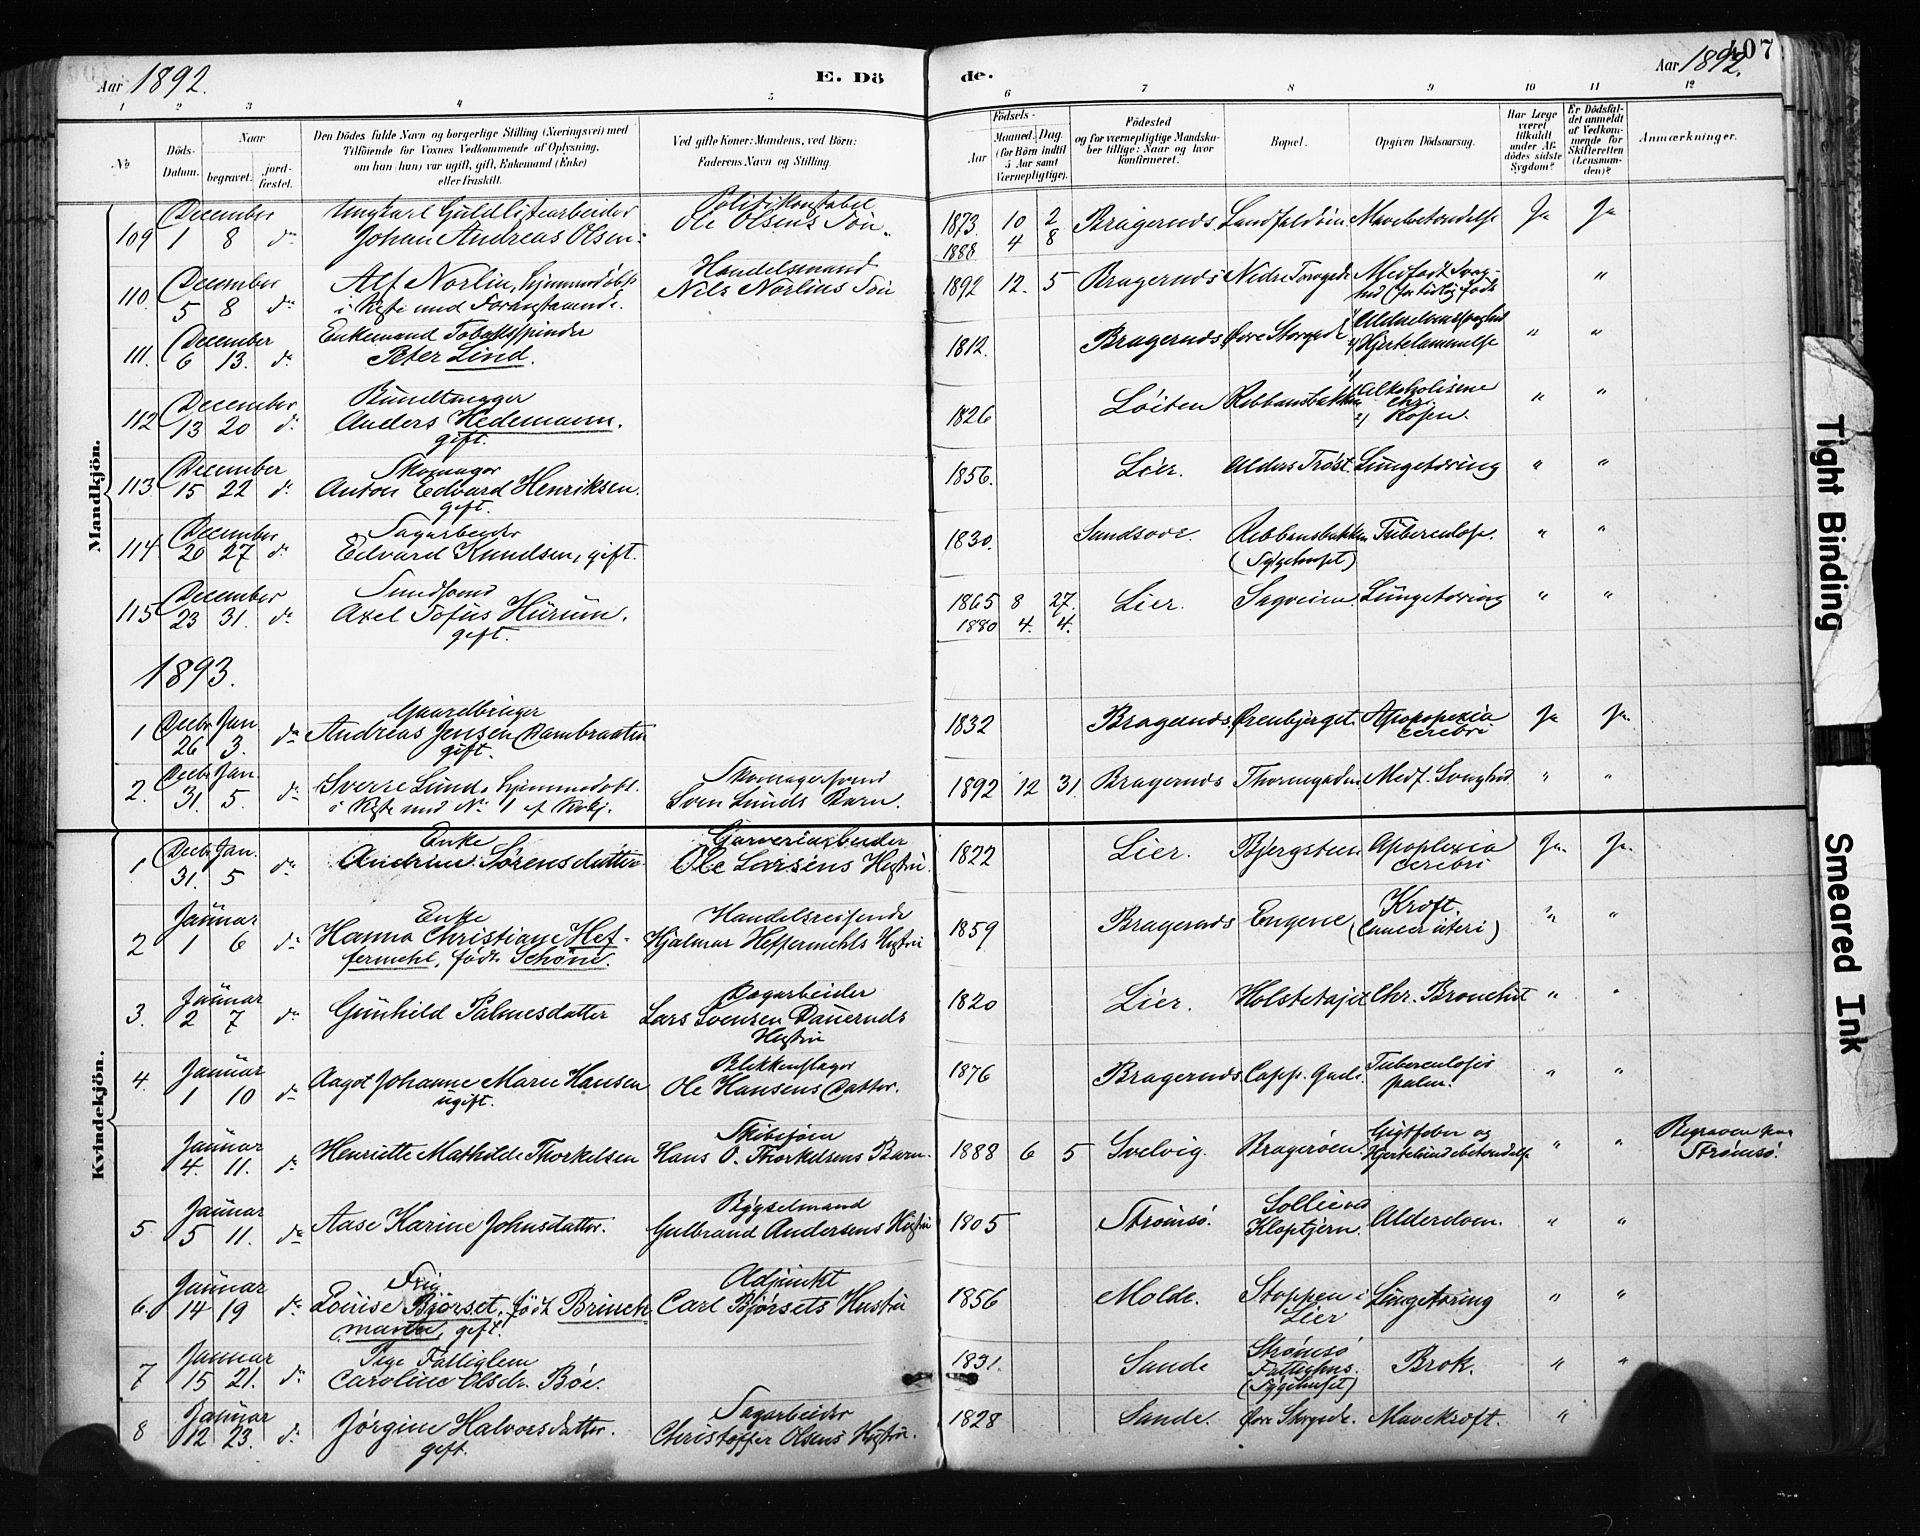 Aar 1892.
E. Döde.
Aar 1892.
407
1 2 3 4 5 6 7 8 9 10 11 12
No
Döds-Datum.
Naar
begravet.
jord-fæstet.
Den Dödes fulde Navn og borgerlige Stilling (Næringsvei) med
Tilföiende for Voxnes Vedkommende af Oplysning,
om han (hun) var ugift, gift, Enkemand (Enke)
eller fraskilt.
Ved gifte Koner: Mandens, ved Börn:
Faderens Navn og Stilling.
Födsels-
Aar
Maaned. Dag.
(for Börn indtil
5 Aar samt
Værnepligtige).
Födested
og for værnepligtige Mandska-
ber tillige: Naar og hvor
konfirmeret.
Bopæl.
Opgiven Dödsaarsag.
Har Læge
været
tilkaldt
under Af-
dödes sidste
Sygdom?
Er Dödsfal-
det anmeldt
af Vedkom-
mende for
Skifteretten
(Lensman-
den)?
Anmærkninger.
Mandkjön.
December Ungkarl Guldlistearbeider Politikonstabel
109 1 8 do Johan Andreas Olsen. Ole Olsens Søn. 1873 10 2 Bragernæs. Landfaldøen Mavebetændelse Ja Ja
1888 4 8
December Alf Norlin, hjemmedøbt Handelsmand
110. 5 8 do i Kiste med Foranstaaende. Nils Norlins Søn 1892 12. 5 Bragernæs Nedre Torvgade Medfødt Svag-
hed (for tidlig født "
December Enkemand Tobakspinder
111. 6 13. do Peter Lind. 1812. Bragernæs Øvre Storgade Alderdomssvaghed
2) Hjertelammelse " "
December Bundtmager
112 13 20 do Anders Hedemann. 1826 Løiten Ribbansbakken 1) Alkoholisme chr.
gift. 2) Rosen. " "
December Skomager
113 15 22 do Anton Edvard Henriksen. 1856. Lier. Alders Trøst. Lungetæring " "
gift.
December Sagarbeider
114 20 27 do Edvard Knudsen, gift. 1830. Sandsvær. Ribbansbakken Tuberculose. " "
(Sygehuset)
December
115 23 31. do Axel Tofus Hurum. 1865 8 27. Lier. Sagveien. Lungetæring " "
gift. 1880 4. 4.
1893.
Decbr Jan Gaardbruger
1 26 3. do Andreas Jensen Dambraaten 1832 Bragernæs. Ørenbjerget. Apopopexia cerebri Ja Ja.
gift.
Decbr Jan. Sverre Lund, hjemmedøbt. Skomagersvend
2. 31. 5. do i Kiste med No 1 af Kvkj. Sven Lunds Barn. 1892 12 31. Bragernæs Thornegaden Medf. Svaghed " "
Kvindekjön.
Decbr Jan. Enke Garveriarbeider
1 31. 5 do Andrine Sørensdatter Ole Larsens Hustru. 1822 Lier. Bjergsteen Apoplexia cerebri Ja. Ja.
Januar Enke Handelsreisende
2 1 6 do Hanna Christiane Hef- Hjalmar Heffermehls Hustru 1859 Bragernæs Engene Kræft. (Cancer uteri) " "
fermehl, født Schøne.
Januar Dagarbeider
3. 2 7 do Gunhild Palmesdatter Lars Svensen Dauernds Hustru 1820 Lier. Holstetajet Chr. Bronchit " "
Januar Blikkenslager
4. 1 10 do Aagot Johanne Marie Hansen Ole Hansens Datter. 1876 Bragernæs Capp. Gade. Tuberculosis pulm. " "
ugift.
Januar Skibstøm
4. 11. do Henriette Mathilde Thorkelsen Hans O. Thorkelsens Barn. 1888 6 5 Svelvig. Bragerøen. Gigtfeber og Hjertehindebetændelse " " Begraven paa Strømsø.
Januar Bygselmand
5. 5 11. do Aase Karine Johnsdatter. Gulbrand Andersens Hustru 1805 Strømsø. Sollie ved Kloptjern. Alderdom. " "
Januar Fru Adjunkt
6. 14 19 do Louise Bjørset, født Brinch- Carl Bjørsets Hustru 1856 Molde. Stoppen i Lier Lungetæring " "
mann, gift.
Januar Pige Fattiglem
7 15 21. do Caroline Olsdr. Bøe. 1831. Sande Strømsø Fattighus. (Sygehuset) Brok. " "
Januar Sagarbeider
8 12 23. do Jørgine Halvorsdatter. Christoffer Olsens Hustru. 1828 Sande. Øvre Storgade. Mavekræft. "
gift.
Tight Binding
Smeared Ink